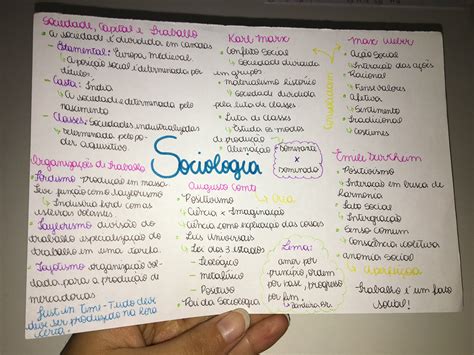 Sociedade, Capital e trabalho
• A sociedade é dividida em camadas
- Estamental: Europa, medieval
↳ A posição social é determinada por
títulos.
- Casta: Índia
↳ A sociedade é determinada pelo
nascimento
- Classes: Sociedades industrializadas
↳ Determinada pelo po-
der aquisitivo
Organizações do trabalho
Fordismo produção em massa
teve junção com o Taylorismo
↳ Industria Ford com as
esteiras volantes
• Taylorismo divisão do
trabalho especialização do
trabalho em uma tarefa.
• Toyotismo organização
voltada para a produção de
mercadorias
Just in Time - Tudo deve
deve ser produzido na hora
certa.
Sociologia
Karl Marx
• Conflito Social
↳ Sociedade dividida
em grupos
• materialismo histórico
↳ Sociedade dividida
pela luta de classes
• Luta de classes
↳ Estuda os modos
de produção
• Alienação
Dominante
x
Dominado
Augusto Comte
• Positivismo
• Ciência x Imaginação
• Ciência como explicação das coisas
• Leis Universais
• Lei dos 3 estados
- Teológico
- metafísico
- Positivo
• Pai da Sociologia
Cria
Lema:
amor por
princípio, ordem
por base, progresso
por fim.
↳ Bandeira
Max Weber
• Ação Social
↳ Interação das ações
• Racional
↳ Fins e valores
• Afetiva
↳ Sentimento
• Tradicional
↳ Costumes
Émile Durkheim
• Positivismo
↳ Interação em busca de
harmonia
• Fato Social
↳ Integração
• Senso comum
↳ Consciência coletiva
• anomia Social
↳ Aperfeiçoa
Trabalho é um fato
social!